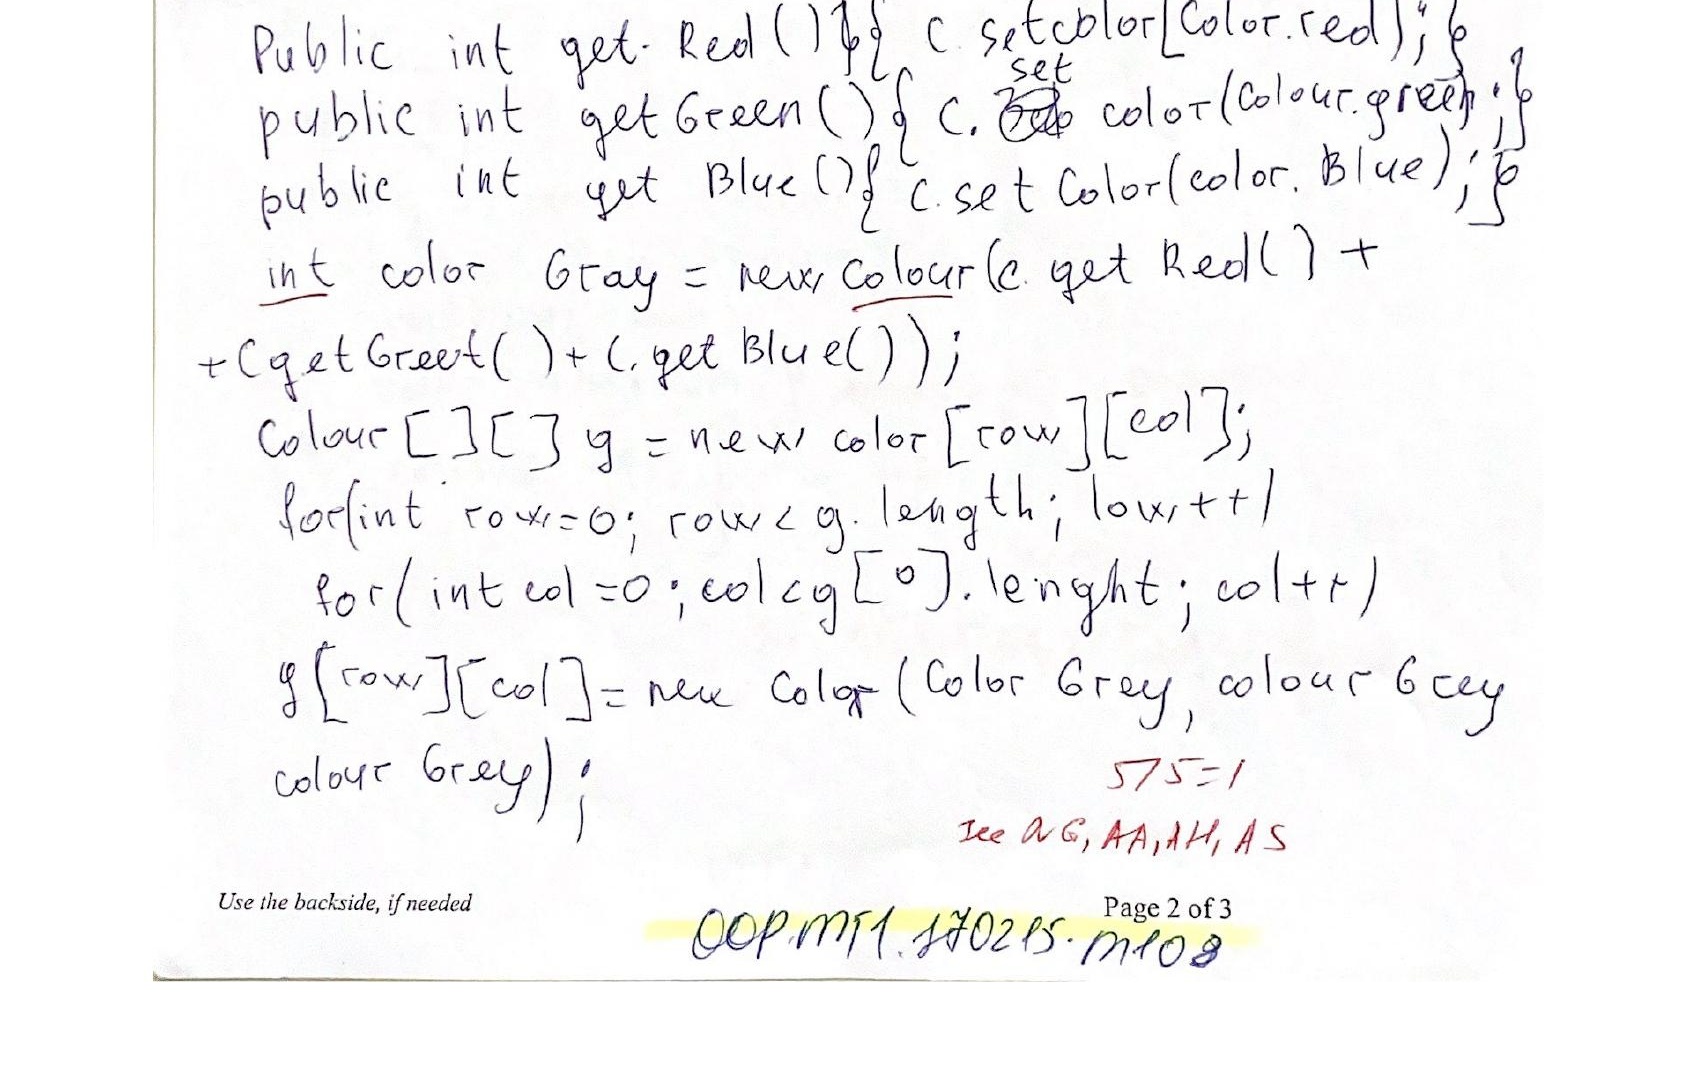 Public int get Red(){ c. setcolor[Color.red); }
set
public int getGreen(){ c. color(Colour.green; }
public int get Blue(){ c. set Color(color. Blue); }
int color Gray = new Colour(c. get Red() +
+ C getGreet() + C. get Blue());
Colour [][] g = new color [row][col];
for(int row=0; row < g. length; low++)
for( int col =0; col < g[0]. lenght; col++)
g[row][col] = new Color (Color Grey, colour Grey
colour Grey);
575=1
See AG, AA, AH, AS
Use the backside, if needed
Page 2 of 3
OOP.MT1.170215.M108